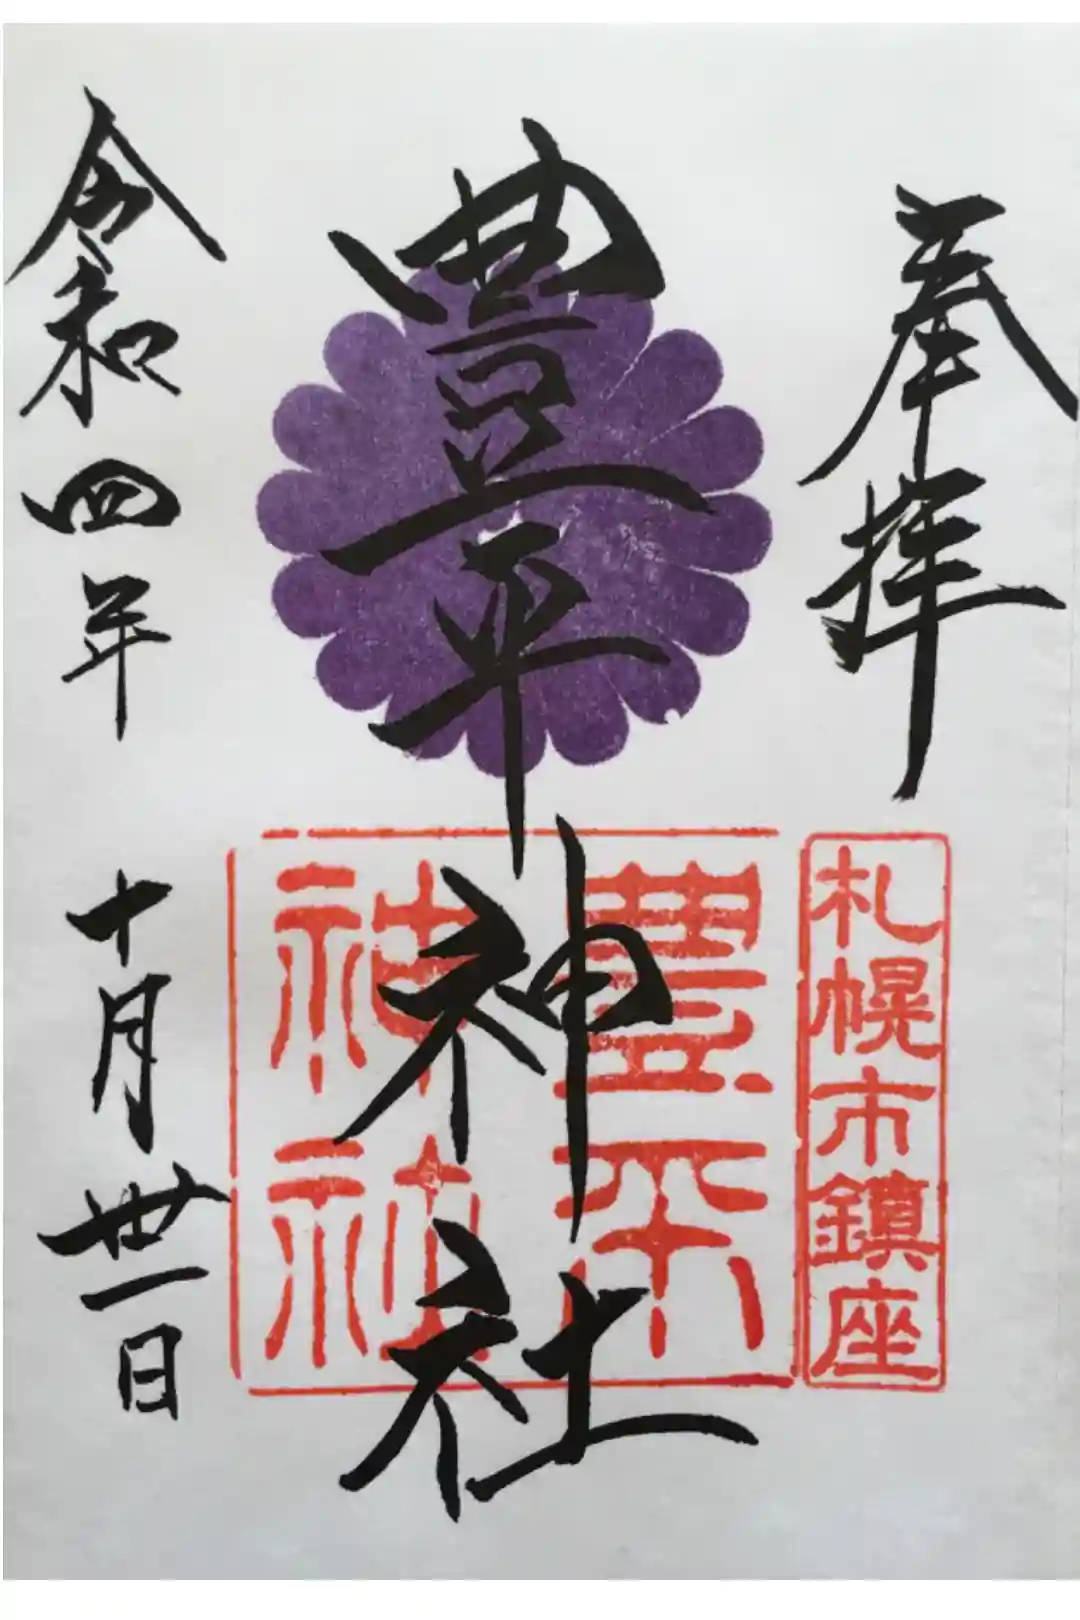 奉拝
札幌市鎮座
豊平神社
豊平
神社
令和四年十月卅一日